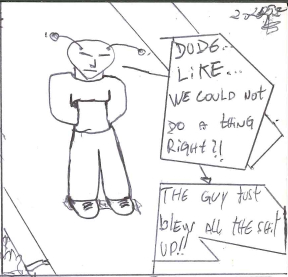 DUDE..
LIKE...
WE COULD NOT
DO A THNG
RIGHT?!
THE GUY JUST
blew ALL THE SHIT
UP!!